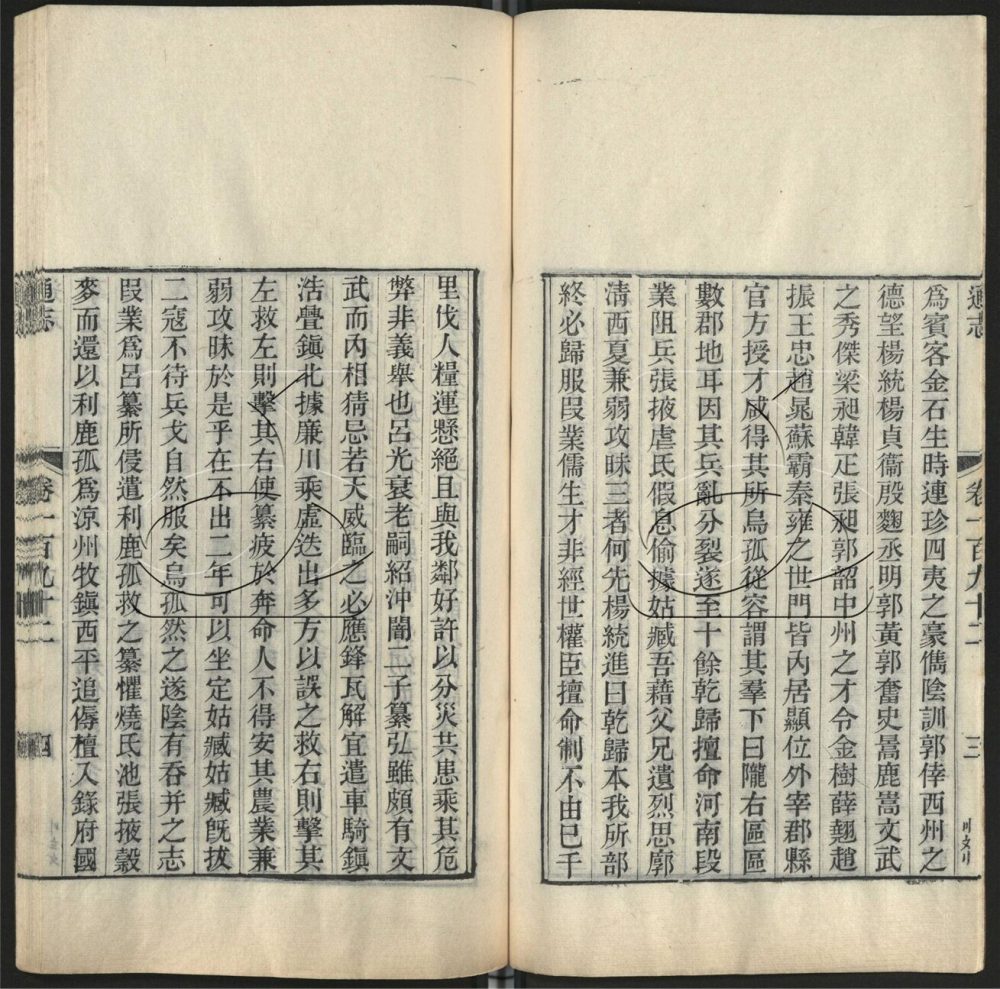 通志
卷一百九十二
三
爲賓客金石生時連珍四夷之豪儁陰訓郭倖西州之
德望楊統楊貞衞殷麴丞明郭黃郭奮史暠鹿嵩文武
之秀傑梁昶韓疋張昶郭韶中州之才令金樹薛翹趙
振王忠趙晁蘇霸秦雍之世門皆內居顯位外宰郡縣
官方授才咸得其所烏孤從容謂其羣下曰隴右區區
數郡地耳因其兵亂分裂遂至十餘乾歸擅命河南段
業阻兵張掖虐氏假息偷據姑臧吾藉父兄遺烈思廓
淸西夏兼弱攻昧三者何先楊統進曰乾歸本我所部
終必歸服段業儒生才非經世權臣擅命制不由已千
里伐人糧運懸絕且與我鄰好許以分災共患乘其危
弊非義舉也呂光衰老嗣紹沖闇二子纂弘雖頗有文
武而內相猜忌若天威臨之必應鋒瓦解宜遣車騎鎭
浩亹鎭北據廉川乘虛迭出多方以誤之救右則擊其
左救左則擊其右使纂疲於奔命人不得安其農業兼
弱攻昧於是乎在不出二年可以坐定姑臧姑臧旣拔
二寇不待兵戈自然服矣烏孤然之遂陰有吞并之志
段業爲呂纂所侵遣利鹿孤救之纂懼燒氐池張掖穀
麥而還以利鹿孤爲涼州牧鎭西平追傉檀入錄府國
通志
卷一百九十二
四